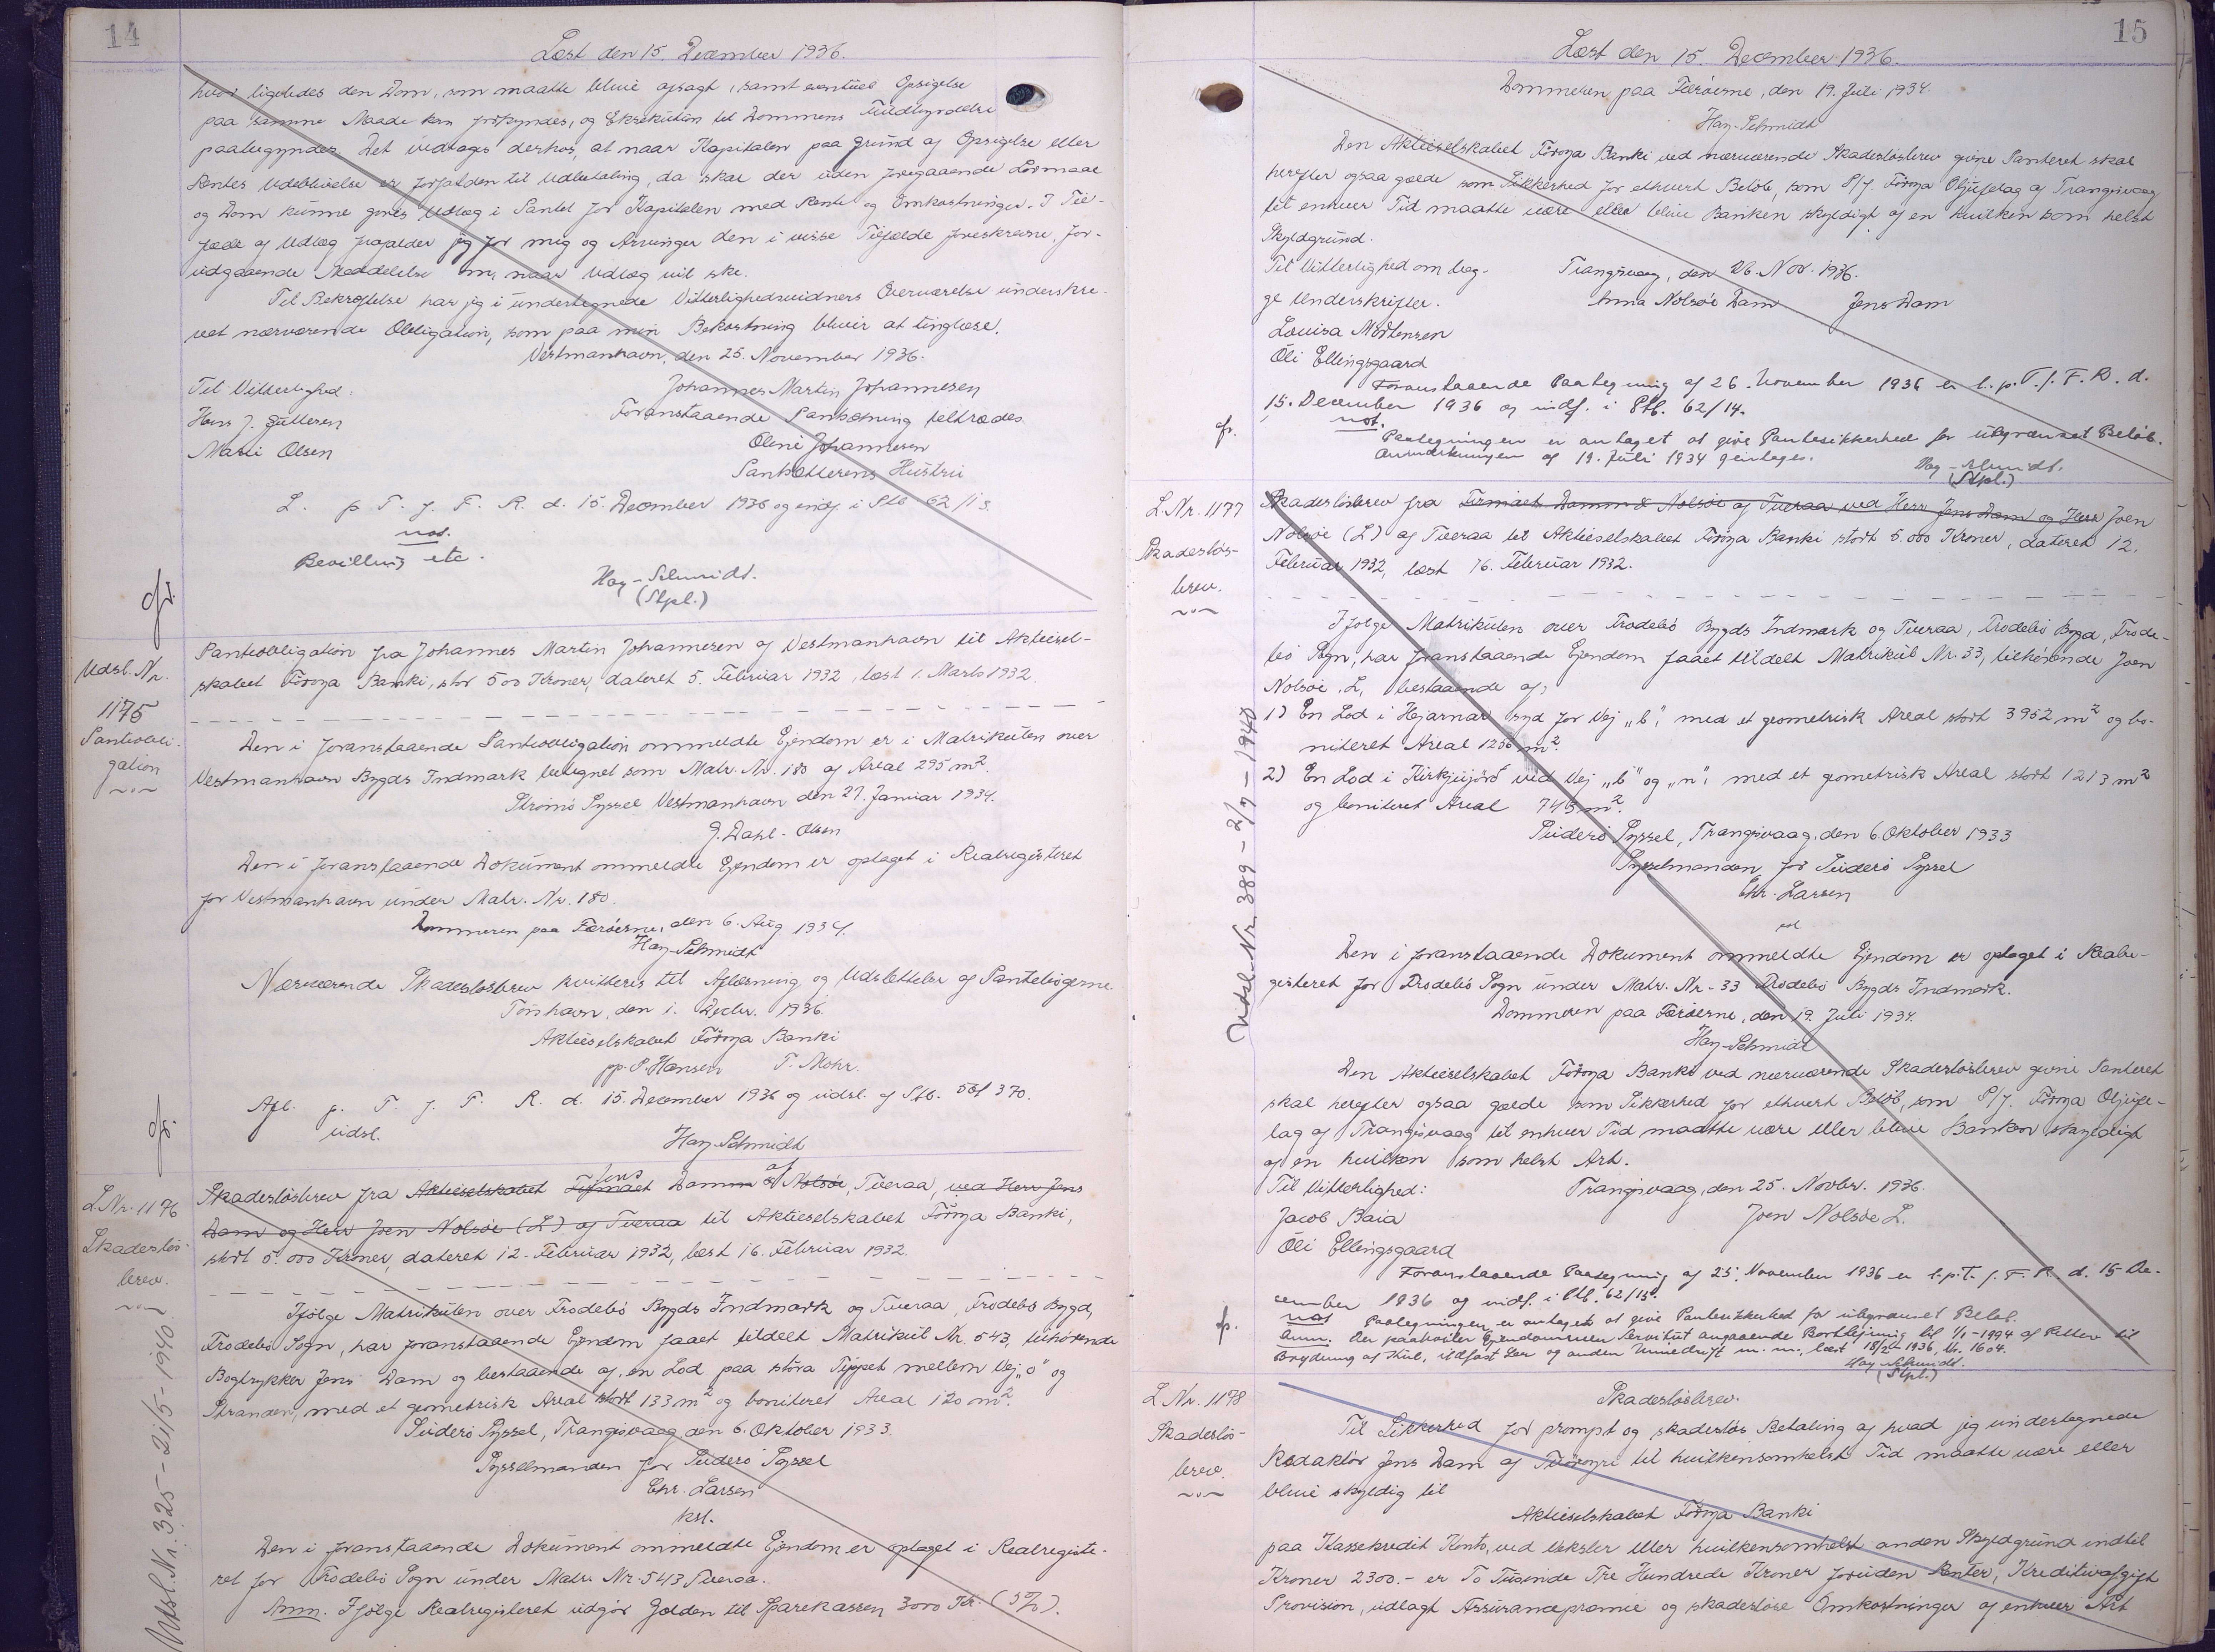 14
Læst den 15. December 1936.
hvor ligeledes den Dom, som maatte blive afsagt, samt eventuel Opsigelse
paa samme Maade kan forkyndes, og Eksekution til Dommens Fuldbyrdelse
paabegyndes. Det vedtages derhos, at naar Kapitalen paa Grund af Opsigelse eller
Rentes Udeblivelse er forfalden til Udbetaling, da skal der uden foregaaende Lovmaal
og Dom kunne gøres Udlæg i Pantet for Kapitalen med Rente og Omkostninger. I Til-
fælde af Udlæg frafalder jeg for mig og Arvinger den i visse Tilfælde foreskrevne, for-
udgaaende Meddelelse om, naar Udlæg vil ske.
Til Bekræftelse har jeg i undertegnede Vitterlighedsvidners Overværelse underskre-
vet nærværende Obligation, som paa min Bekostning bliver at tinglæse.
Vestmanhavn, den 25. November 1936.
Til Vitterlighed: Johannes Martin Johannesen
Hans J. Gulleren Foranstaaende Pantsætning tiltrædes
Marti Olsen Oline Johannesen
Pantsætterens Hustru
L. p T. f. F. R. d. 15. December 1936 og indf i Ptb 62/13.
not.
Bevilling etc.
Hay-Schmidt.
(Stpl.)
gf.
Udsl. Nr.
1175
Panteobli-
gation
Panteobligation fra Johannes Martin Johannesen af Vestmanhavn til Aktiesel-
skabet Føroya Banki, stor 500 Kroner, dateret 5. Februar 1932, læst 1. Marts 1932.
Den i foranstaaende Panteobligation ommeldte Ejendom er i Matrikulen over
Vestmanhavn Bygds Indmark betegnet som Matr. Nr. 180 af Areal 295 m².
Strømø Syssel Vestmanhavn den 27. Januar 1934.
J. Dahl-Olsen
Den i foranstaaende Dokument ommeldte Ejendom er optaget i Realregistret
for Vestmanhavn under Matr. Nr. 180.
Dommeren paa Færøerne, den 6. Aug 1934.
Hay-Schmidt
Nærværende Skadesløsbrev kvitteres til Aflæsning og Udslettelse af Pantebøgerne.
Tórshavn, den 1. Decbr. 1936.
Aktieselskabet Føroya Banki
pp. P. Hansen T. Mohr.
Afl. p. T. f. F. R. d. 15. December 1936 og udsl. af Ptb. 56/370.
udsl.
Hay-Schmidt
gf.
L. Nr. 1176
Skadesløs-
brev.
Skadesløsbrev fra Aktieselskabet Firmaet Jens Damm & af Nolsøe, Tveraa, ved Herr Jens
Dam og Herr Joen Nolsøe (L) af Tveraa til Aktieselskabet Føroya Banki,
stort 5.000 Kroner, dateret 12. Februar 1932, læst 16. Februar 1932.
Ifølge Matrikulen over Frodebø Bygds Indmark og Tveraa, Frodebø Bygd,
Frodebø Sogn, har foranstaaende Ejendom faaet tildelt Matrikul Nr. 543, tilhørende
Bogtrykker Jens Dam og bestaaende af, en Lod paa stóra Tippet mellem Vej „o" og
Stranden, med et geometrisk Areal stort 133 m² og boniteret Areal 120 m².
Suderø Syssel, Trangisvaag, den 6. Oktober 1933.
Sysselmanden for Suderø Syssel
Chr. Larsen
kst.
Den i foranstaaende Dokument ommeldte Ejendom er optaget i Realregiste-
ret for Frodebø Sogn under Matr. Nr. 543 Tveraa.
Anm. Ifølge Realregisteret udgør Gælden til Sparekassen 3000 Kr. (5%).
Udsl. Nr. 325-21/5-1940.
15
Læst den 15. December 1936.
Dommeren paa Færøerne, den 19. Juli 1934.
Hay-Schmidt
Den Aktieselskabet Føroya Banki ved nærværende Skadesløsbrev givne Panteret skal
herefter ogsaa gælde som Sikkerhed for ethvert Beløb, som P/f. Føroya Oljufelag af Trangisvaag
til enhver Tid maatte være eller blive Banken skyldigt af en hvilken som helst
Skyldgrund.
Til Vitterlighed om beg- Trangisvaag, den 26. Nov. 1936.
ge Underskrifter. Anna Nolsøe Dam Jens Dam
Louisa Mortensen
Óli Ellingsgaard
Foranstaaende Paategning af 26. November 1936 er l. p. T. f. F. R. d.
15. December 1936 og indf. i Ptb. 62/14.
not.
gf.
Paategningen er antaget at give Pantesikkerhed for ubegrænset Beløb.
Anmærkningen af 19. Juli 1934 gentages.
Hay-Schmidt.
(Stpl.)
L. Nr. 1177
Skadesløs-
brev.
Skadesløsbrev fra Firmaet Damm & Nolsøe af Tveraa ved Herr Jens Dam og Herr Joen
Nolsøe (L) af Tveraa til Aktieselskabet Føroya Banki stort 5.000 Kroner, dateret 12.
Februar 1932, læst 16. Februar 1932.
Ifølge Matrikulen over Frodebø Bygds Indmark og Tveraa, Frodebø Bygd, Frode-
bø Sogn, har foranstaaende Ejendom faaet tildelt Matrikul Nr. 33, tilhørende Joen
Nolsøe, L, bestaaende af:
1) En Lod i Hejarnar syd for Vej „b", med et geometrisk Areal stort 3952 m² og bo-
niteret Areal 1256 m².
2) En Lod i Kirkjujørð ved Vej „b" og „n", med et geometrisk Areal stort 1213 m²
og boniteret Areal 743 m².
Suderø Syssel, Trangisvaag, den 6. Oktober 1933
Sysselmanden for Suderø Syssel
Chr. Larsen
kst
Den i foranstaaende Dokument ommeldte Ejendom er optaget i Realre-
gisteret for Frodebø Sogn under Matr. Nr. 33 Frodebø Bygds Indmark.
Dommeren paa Færøerne, den 19. Juli 1934.
Hay-Schmidt
Den Aktieselskabet Føroya Banki ved nærværende Skadesløsbrev givne Panteret
skal herefter ogsaa gælde som Sikkerhed for ethvert Beløb, som P/f. Føroya Oljufe-
lag af Trangisvaag til enhver Tid maatte være eller blive Banken skyldigt
af en hvilken som helst Art.
Til Vitterlighed: Trangisvaag, den 25. Novbr. 1936.
Jacob Baia Joen Nolsøe L.
Óli Ellingsgaard
Foranstaaende Paategning af 25. November 1936 er l. p. T. f. F. R. d. 15. De-
cember 1936 og indf. i Ptb. 62/15.
gf.
not Paategningen er antaget at give Pantesikkerhed for ubegrænset Beløb.
Anm. Der paahviler Ejendommen Servitut angaaende Bortlejning til 1/1-1994 af Retten til
Brydning af Kul, ildfast Ler og anden Minedrift m. m., læst 18/2-1936, Nr. 1604.
Hay-Schmidt.
(Stpl.)
Udsl. Nr. 389-2/7-1940
L. Nr. 1178
Skadesløs-
brev.
Skadesløsbrev.
Til Sikkerhed for prompt og skadesløs Betaling af hvad jeg undertegnede
Redaktør Jens Dam af Tvøroyri til hvilkensomhelst Tid maatte være eller
blive skyldig til
Aktieselskabet Føroya Banki
paa Kassekredit Konto, ved Veksler eller hvilkensomhelst anden Skyldgrund indtil
Kroner 2300.- er To Tusinde Tre Hundrede Kroner foruden Renter, Kreditivafgift
Provision, udlagt Assurancepræmie og skadesløse Omkostninger af enhver Art